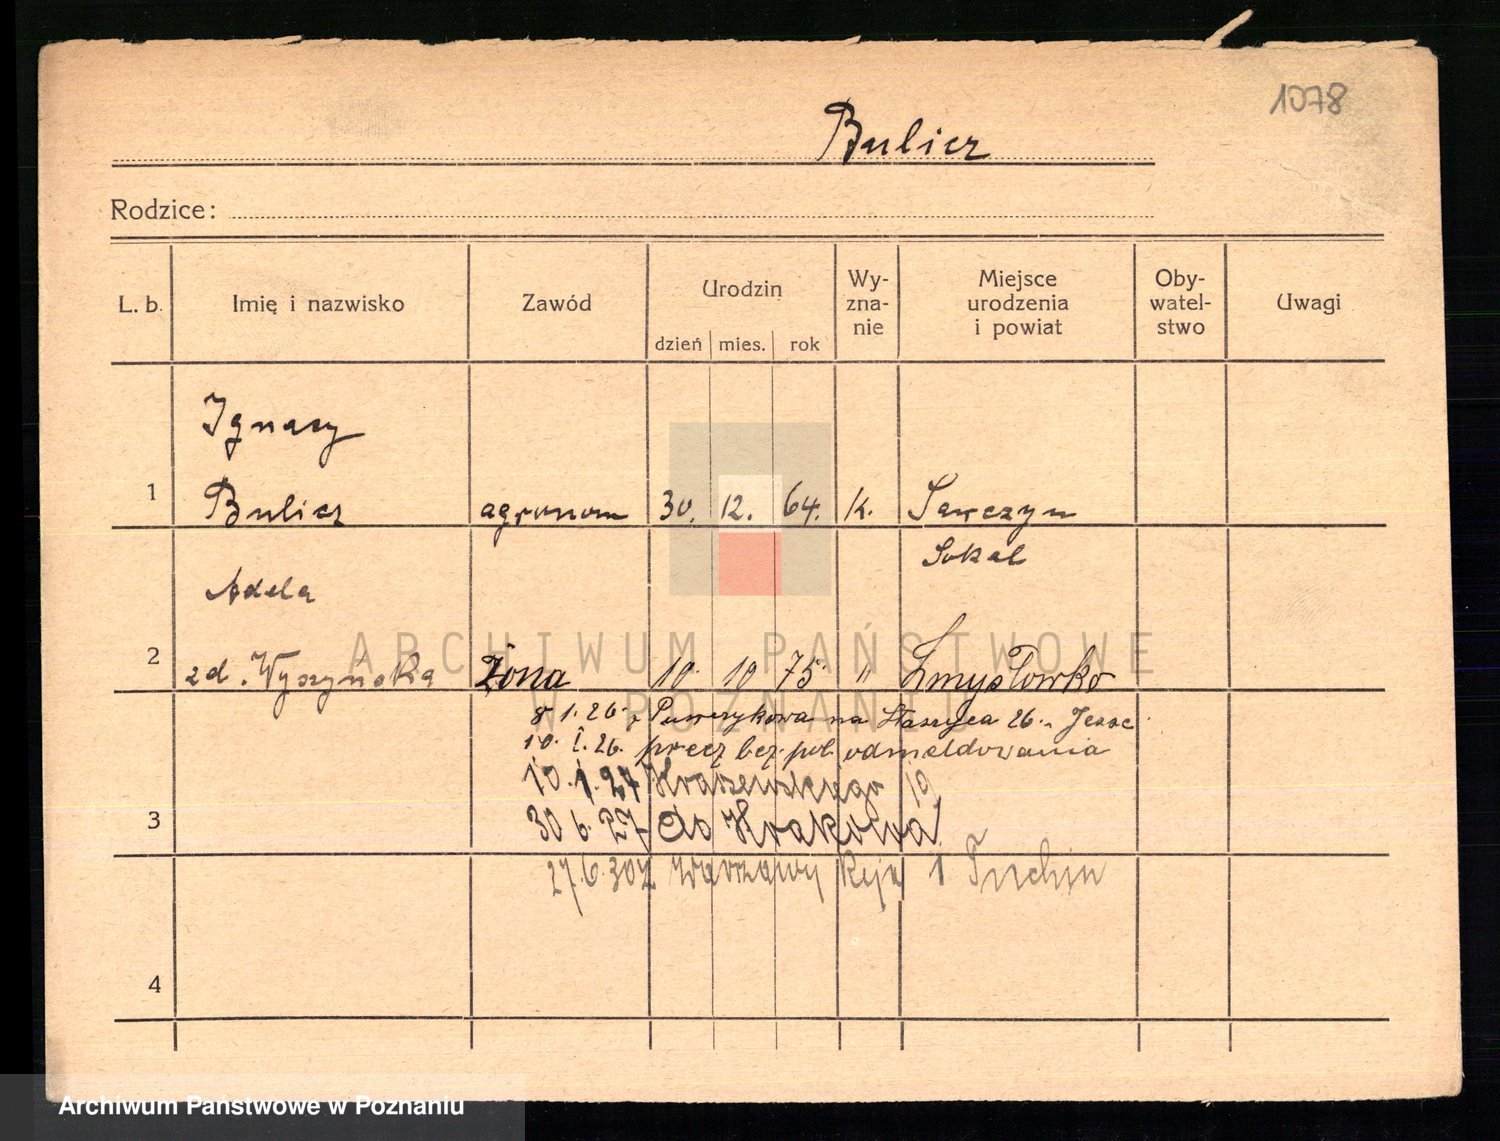 1078
Bulicz
Rodzice:
L. b. Imię i nazwisko Zawód Urodzin dzień mies. rok Wy-zna-nie Miejsce urodzenia i powiat Oby-watel-stwo Uwagi
Ignacy
1 Bulicz agronom 30. 12. 64. k. Sawczyn
Sokal
Adela
2 zd. Wyszyńska Żona 10. 10 75 " Zmysłówko
8 1. 26. z na Staszyca 26.
10. I. 26. precz bez pol. odmeldowania
10. 1. 27 Kraszewskiego 19
3 30 6. 27 do Krakowa
27.6.30 z Warszawy Reja 1 Tuchin
4
ARCHIWUM PAŃSTWOWE
W POZNANIU
Archiwum Państwowe w Poznaniu